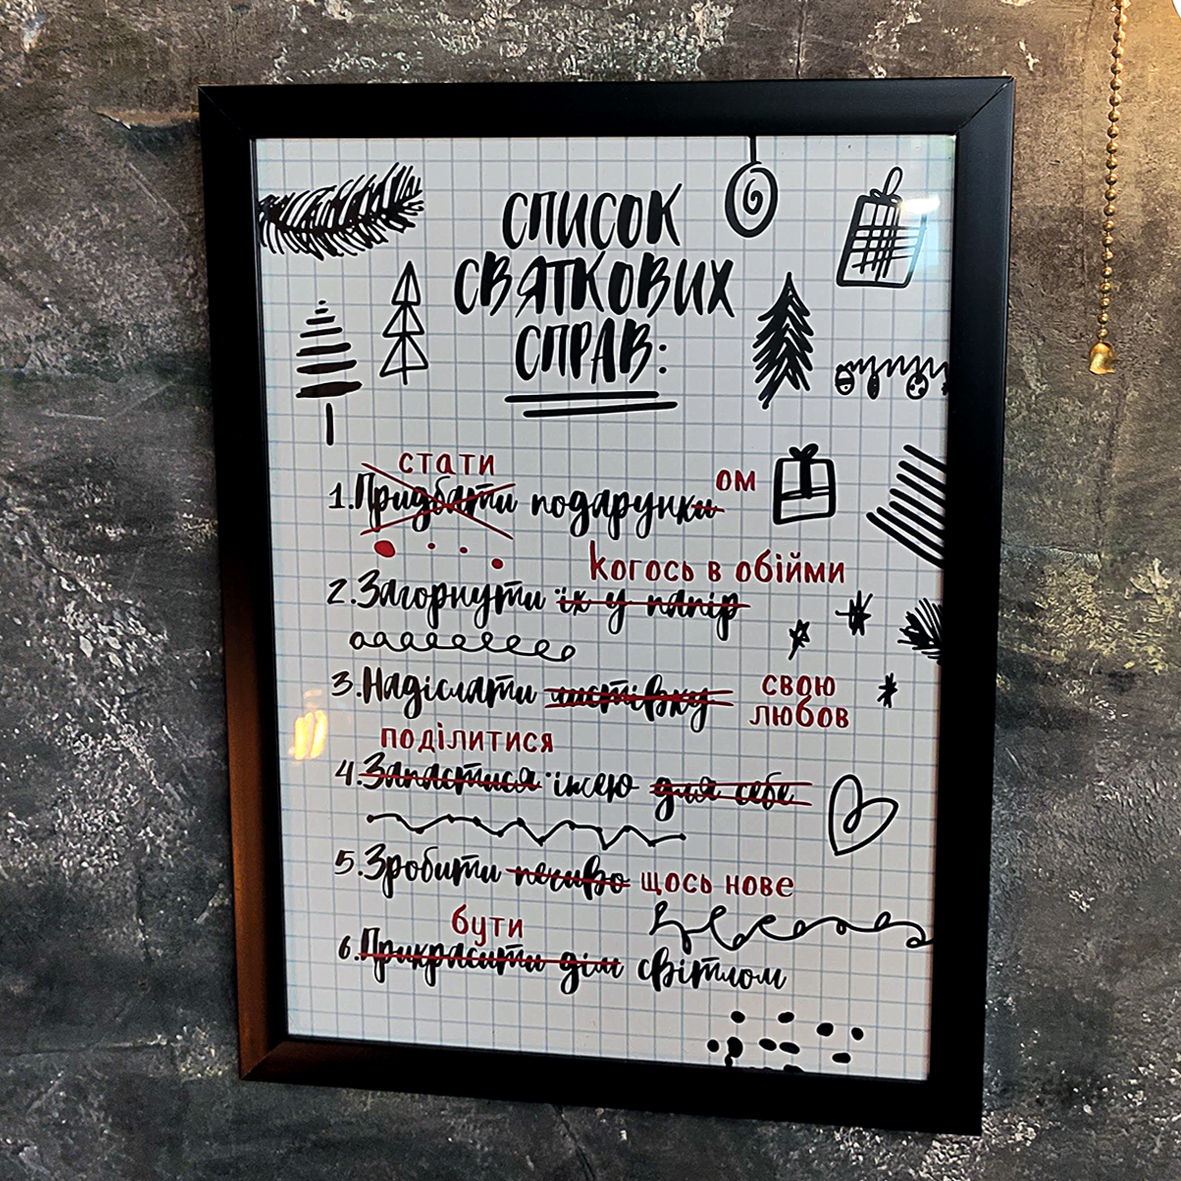 СПИСОК
СВЯТКОВИХ
СПРАВ:
стати
ом
1. Придбати подарунки
когось в обійми
2. Загорнути їх у папір
3. Надіслати листівку свою
любов
поділитися
4. Запастися їжею для себе
5. Зробити печиво щось нове
бути
6. Прикрасити дім світлом